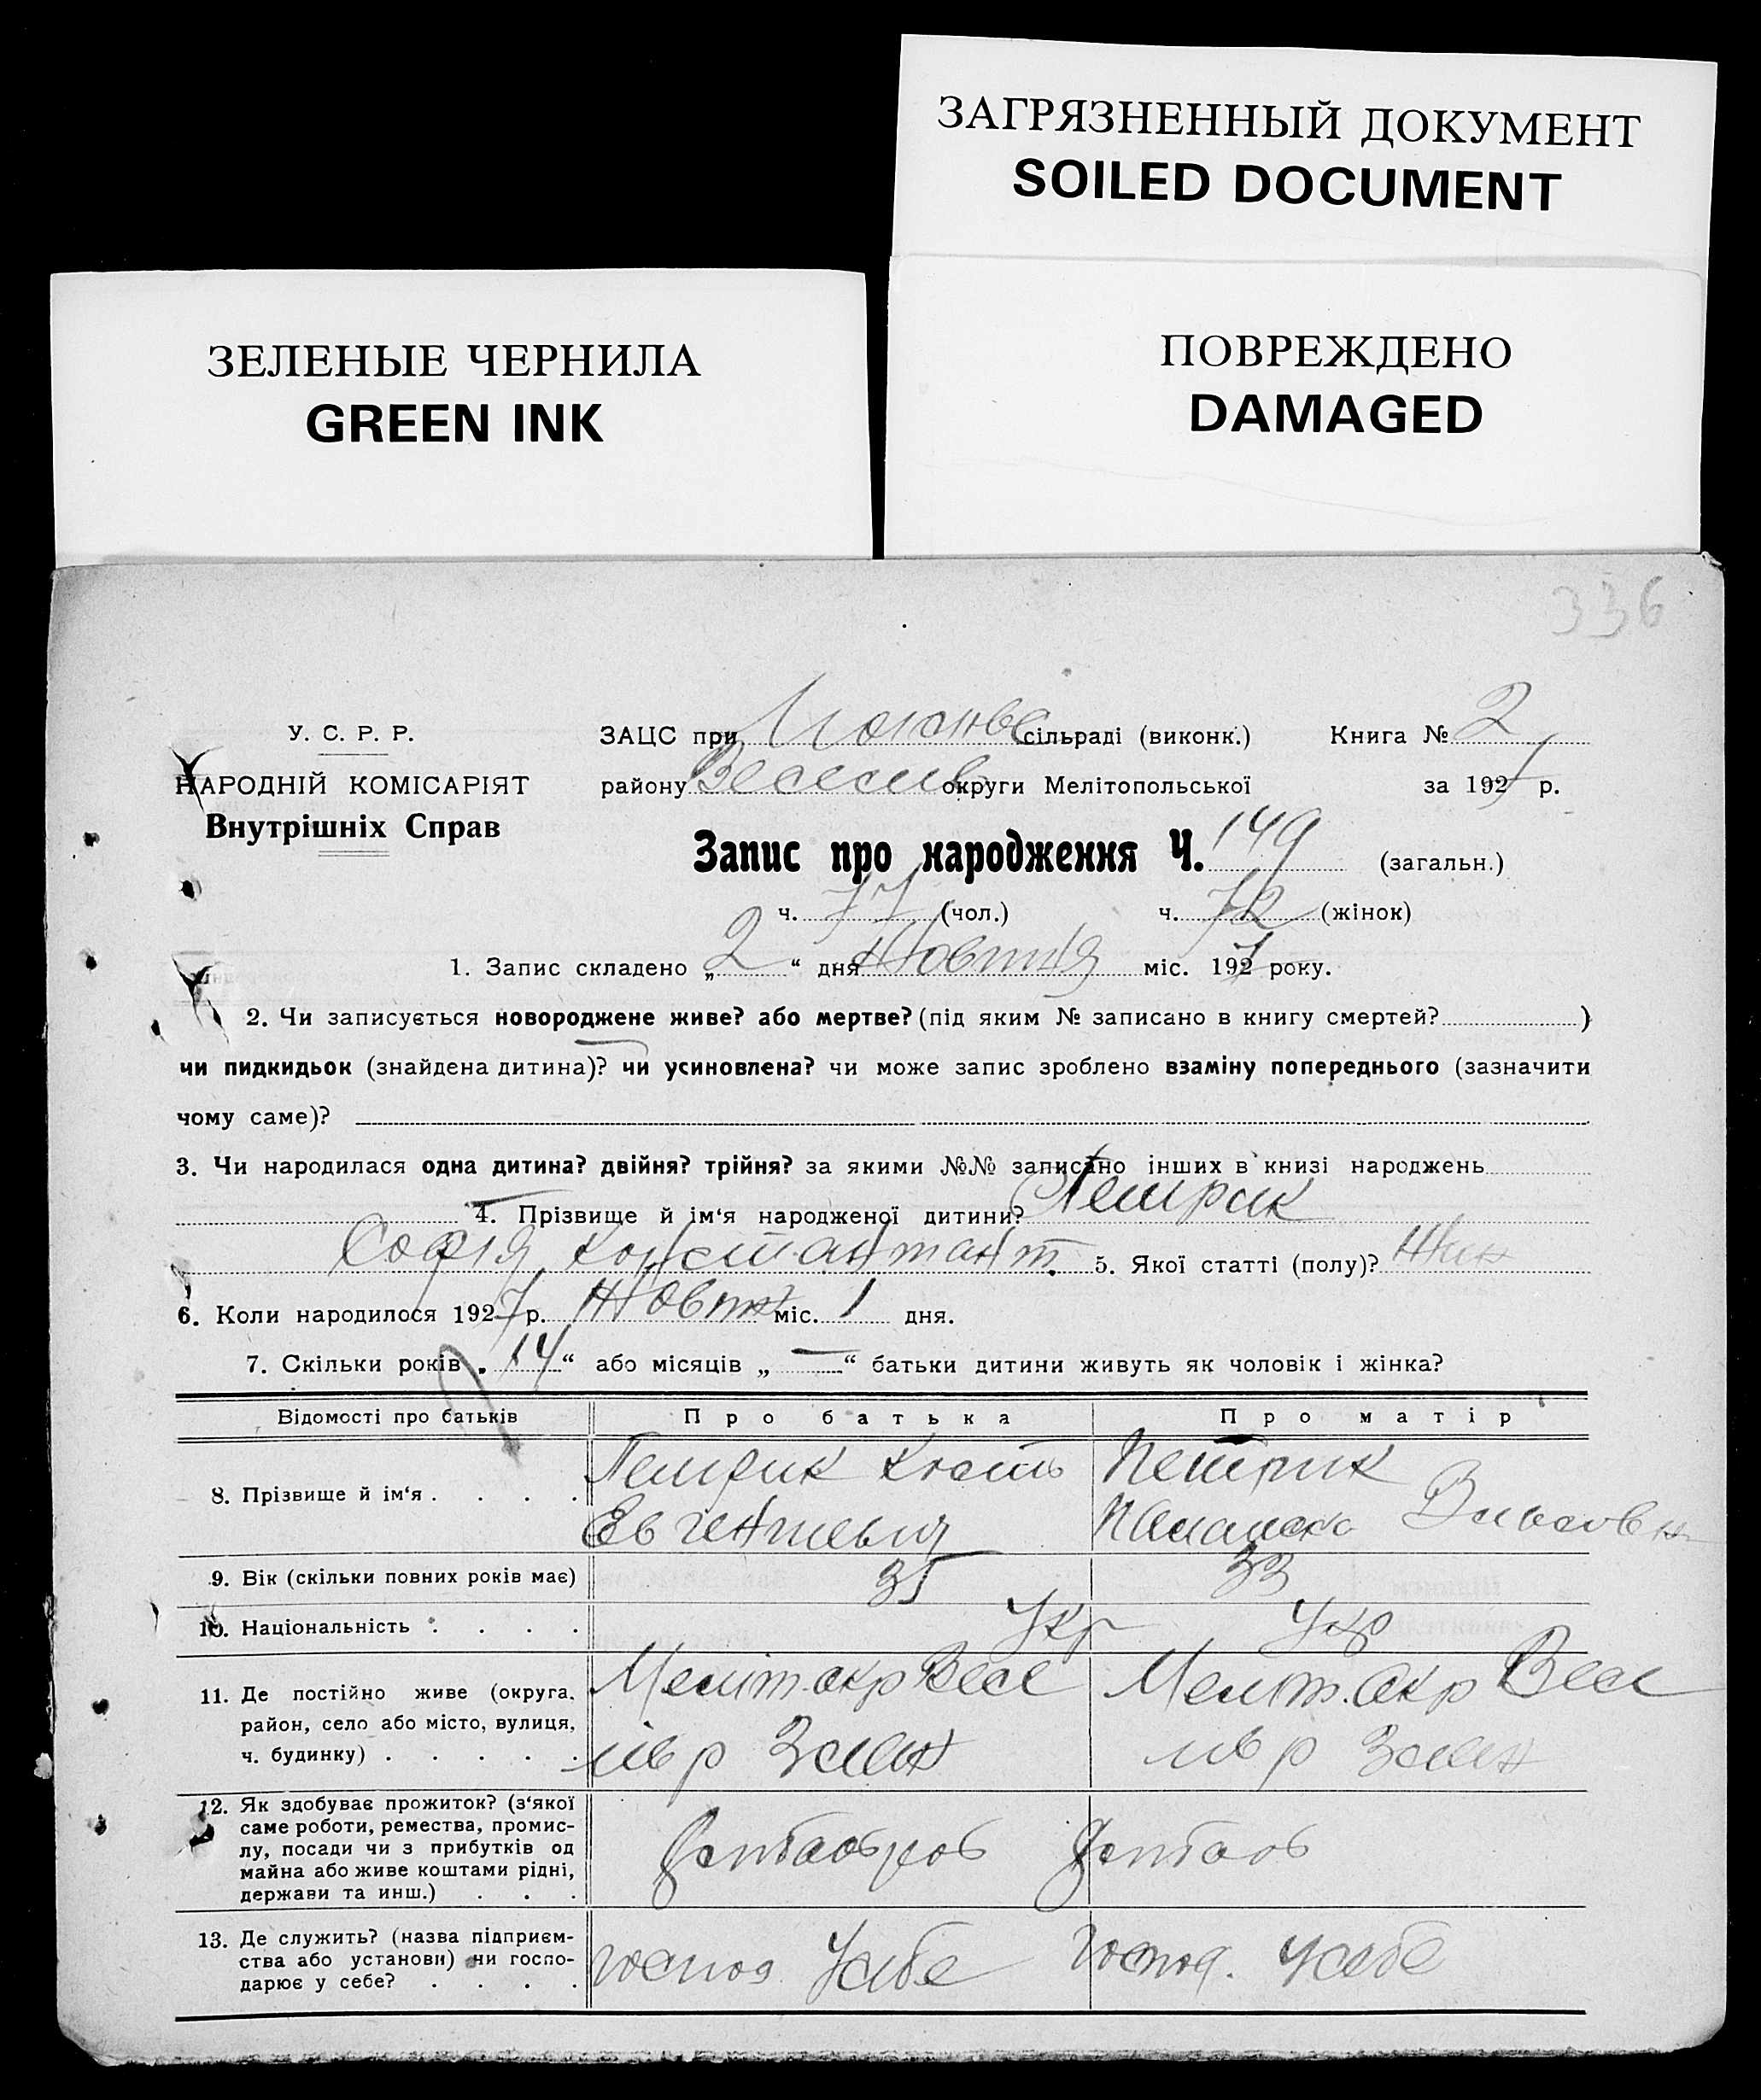 ЗАГРЯЗНЕННЫЙ ДОКУМЕНТ
SOILED DOCUMENT
ЗЕЛЕНЫЕ ЧЕРНИЛА
GREEN INK
ПОВРЕЖДЕНО
DAMAGED
336
У. С. Р. Р.
НАРОДНІЙ КОМІСАРІЯТ
Внутрішніх Справ
ЗАЦС при сільраді (виконк.) Книга № 2
району Веселів округи Мелітопольської за 1927 р.
Запис про народження Ч. 149 (загальн.)
ч. 77 (чол.) ч. 72 (жінок)
1. Запис складено „ 2 “ дня Жовтня міс. 1927 року.
2. Чи записується новороджене живе? або мертве? (під яким № записано в книгу смертей? )
чи пидкидьок (знайдена дитина)? чи усиновлена? чи може запис зроблено взаміну попереднього (зазначити
чому саме)?
3. Чи народилася одна дитина? двійня? трійня? за якими №№ записано інших в книзі народжень
4. Прізвище й ім‘я народженої дитини? Петрик
Софія Константант. 5. Якої статті (полу)? Жин
6. Коли народилося 1927 р. Жовтн міс. 1 дня.
7. Скільки років „ 14 “ або місяців „ — “ батьки дитини живуть як чоловік і жінка?
Відомості про батьків Про батька Про матір
8. Прізвище й ім‘я . . . . Петрик Кость Петрик
Евгентиевич
9. Вік (скільки повних років має) 35 33
10. Національність . . . . Укр Укр
11. Де постійно живе (округа, Меліт. окр Весе Меліт. окр Весе
район, село або місто, вулиця,
ч. будинку) . . . . . лів р лів р
12. Як здобуває прожиток? (з‘якої
саме роботи, ремества, промис-
лу, посади чи з прибутків од
майна або живе коштами рідні,
держави та инш.) . . .
13. Де служить? (назва підприєм-
ства або установи) чи госпо- господ. Усебе господ. Усебе
дарює у себе? . . . .